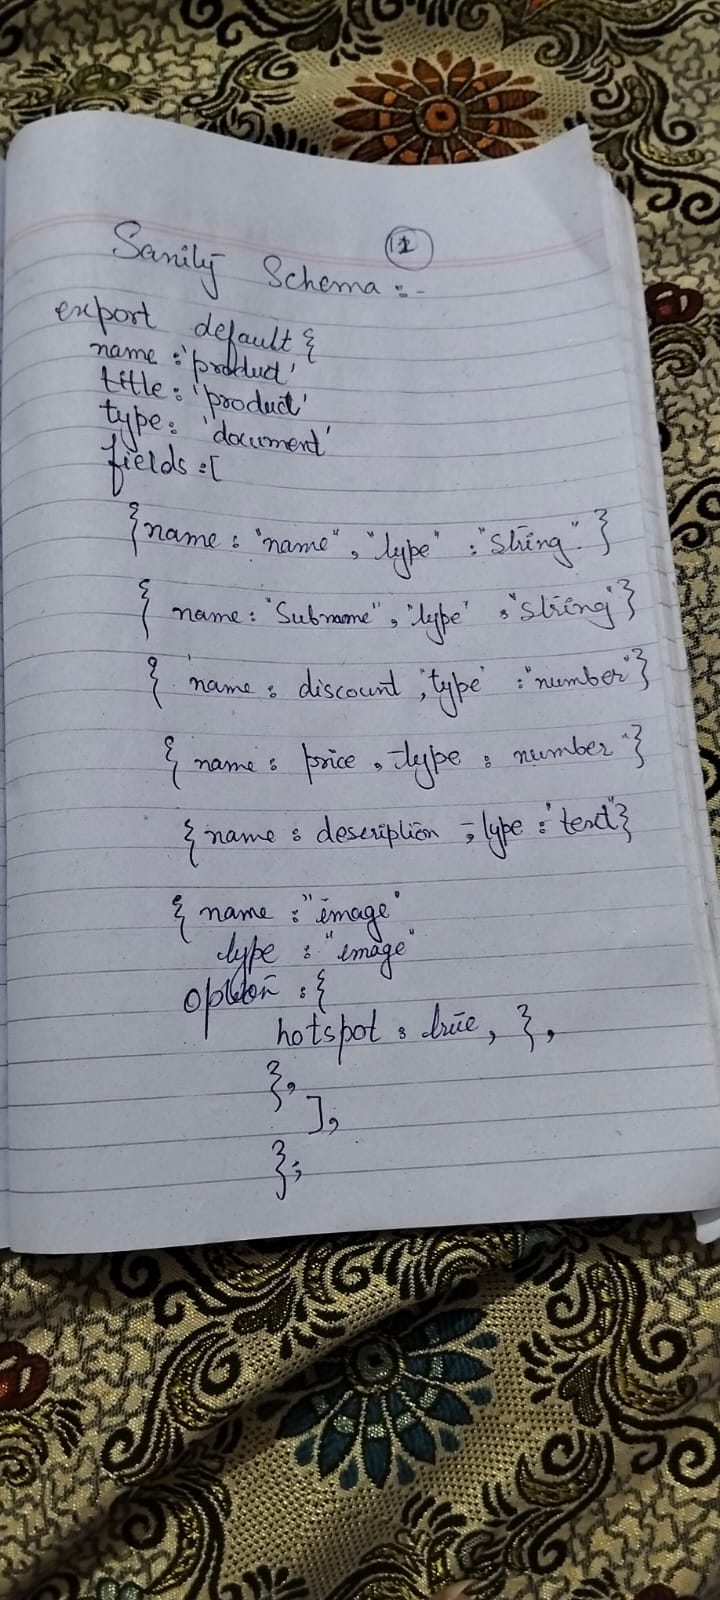 12
Sanity Schema :-
export default {
name : 'product'
title : 'product'
type : 'document'
fields : [
{ name : "name", "type" : "string" }
{ name : "Subname", "type" : "string" }
{ name : discount, "type" : "number" }
{ name : price, type : number" }
{ name : description, type : "text" }
{ name : "image"
type : "image"
option : {
hotspot : true, },
},
],
};